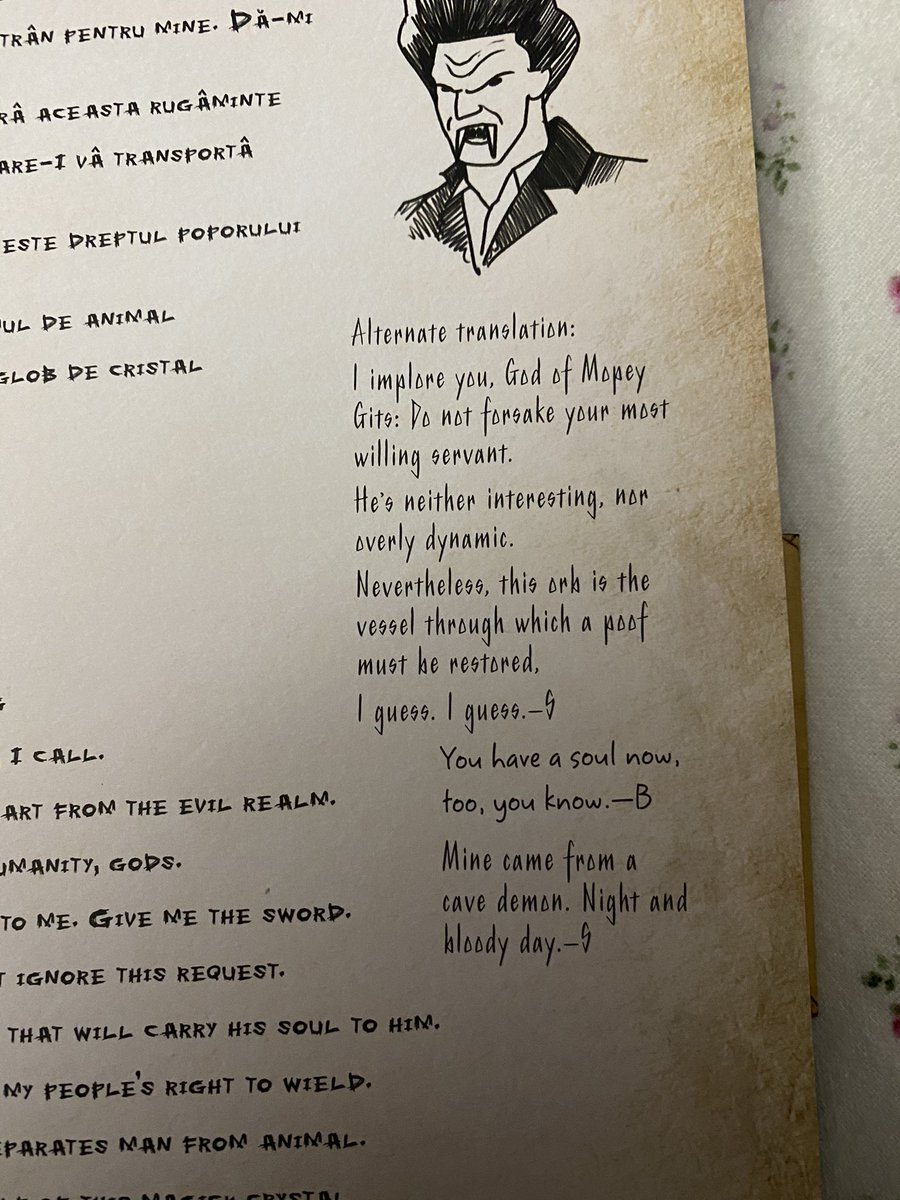 TRÂN PENTRU MINE. DĂ-MI
RÂ ACEASTA RUGÂMINTE
ARE-I VÂ TRANSPORTÂ
ESTE DREPTUL POPORULUI
UL DE ANIMAL
GLOB DE CRISTAL
Alternate translation:
I implore you, God of Mopey
Gits: Do not forsake your most
willing servant.
He's neither interesting, nor
overly dynamic.
Nevertheless, this orb is the
vessel through which a poof
must be restored,
I guess. I guess.—S
You have a soul now,
too, you know.—B
Mine came from a
cave demon. Night and
bloody day.—S
I CALL.
ART FROM THE EVIL REALM.
UMANITY, GODS.
TO ME. GIVE ME THE SWORD.
T IGNORE THIS REQUEST.
THAT WILL CARRY HIS SOUL TO HIM.
MY PEOPLE'S RIGHT TO WIELD.
EPARATES MAN FROM ANIMAL.
THIS MAGICK CRYSTAL